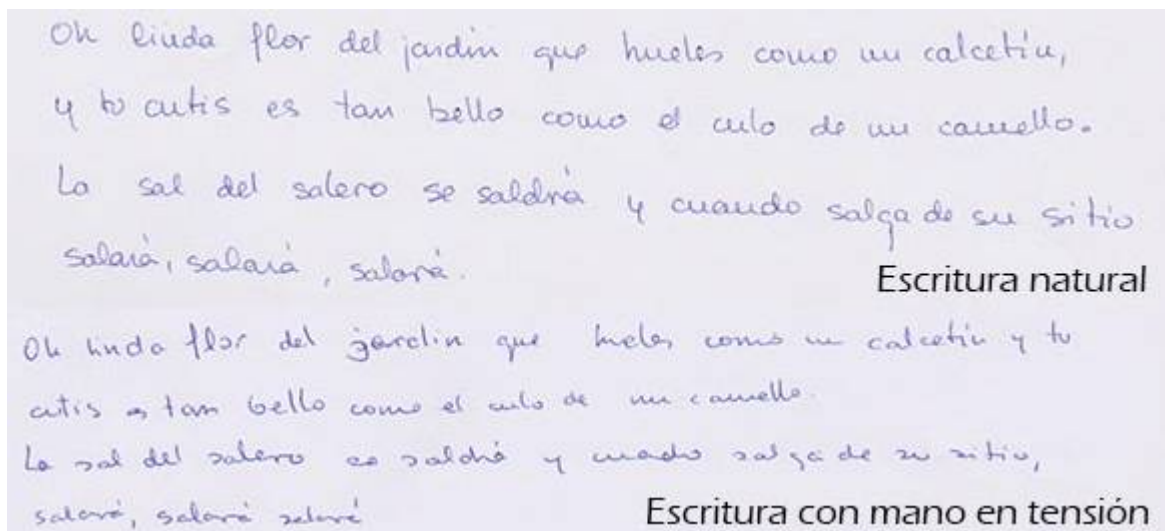 Oh linda flor del jardin que hueles como un calcetín,
y tu cutis es tan bello como el culo de un camello.
La sal del salero se saldrá y cuando salga de su sitio
salará, salará, salará.
Escritura natural
Oh linda flor del jardin que hueles como un calcetin y tu
cutis es tan bello como el culo de un camello.
La sal del salero se saldrá y cuando salga de su sitio,
salará, salará salará
Escritura con mano en tensión